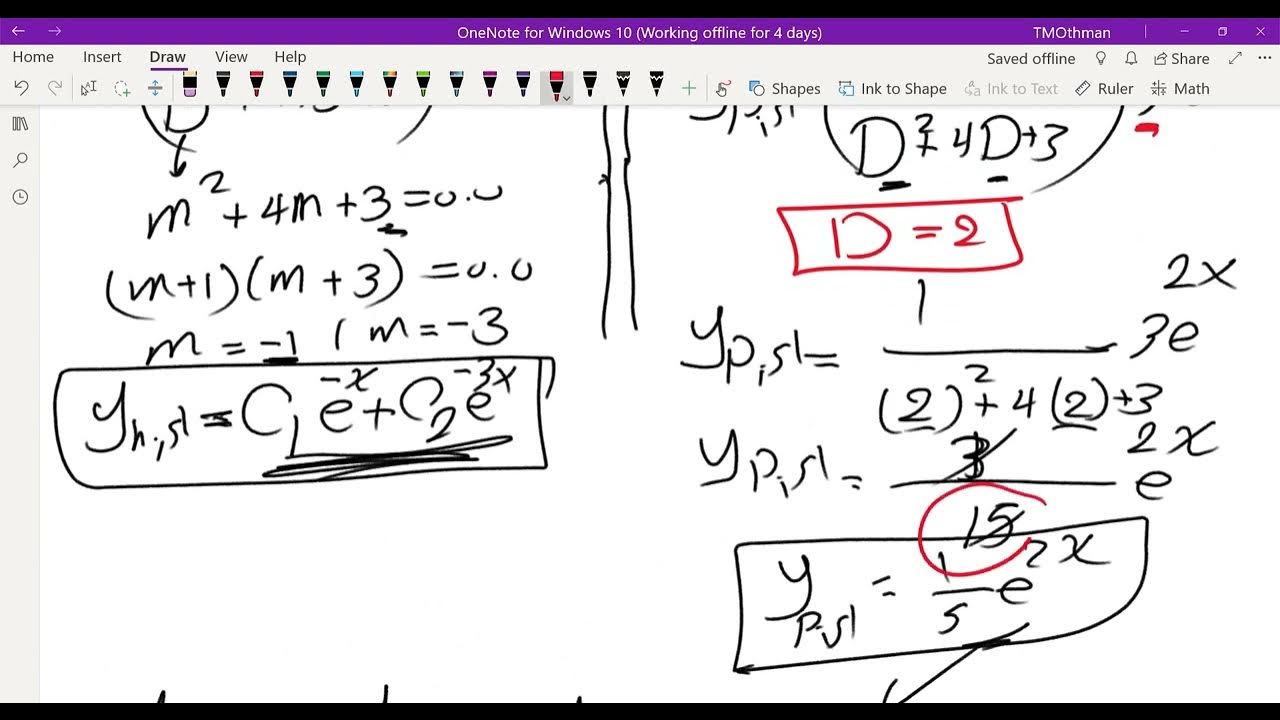 OneNote for Windows 10 (Working offline for 4 days)
TMOthman
Home Insert Draw View Help
Saved offline Share
Shapes Ink to Shape Ink to Text Ruler Math
D
m² + 4m + 3 = 0.0
(m+1)(m+3) = 0.0
m = -1 / m = -3
y_{h.sl} = C₁ e^{-x} + C₂ e^{-3x}
y_{p.sl}
D² + 4D + 3
D = 2
y_{p.sl} = 1 / ((2)² + 4(2) + 3) 3e^{2x}
y_{p.sl} = 3/15 e^{2x}
y_{p.sl} = 1/5 e^{2x}